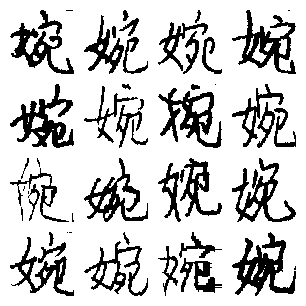 婉婉婉婉
婉婉婉婉
婉婉婉婉
婉婉婉婉